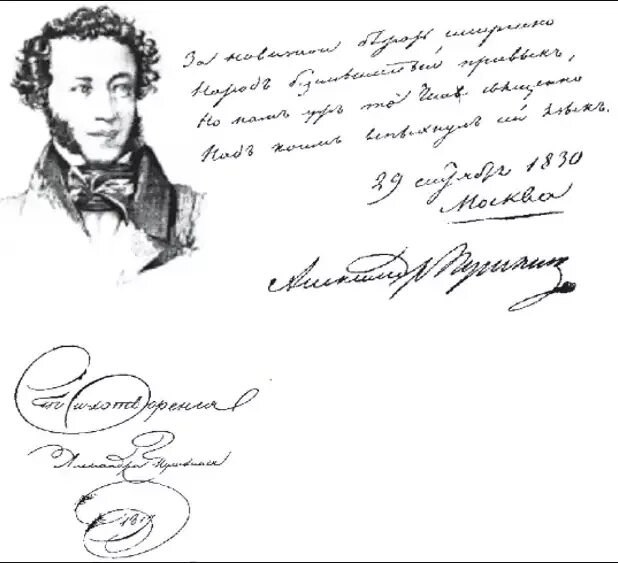 За новизной бѣжать смиренно
Народъ безсмысленный привыкъ,
Но намъ ужъ то чело священно
Надъ коимъ вспыхнулъ сей языкъ.
29 сентября 1830
Москва
Александр Пушкин
Стихотворенія
Александра Пушкина
1817